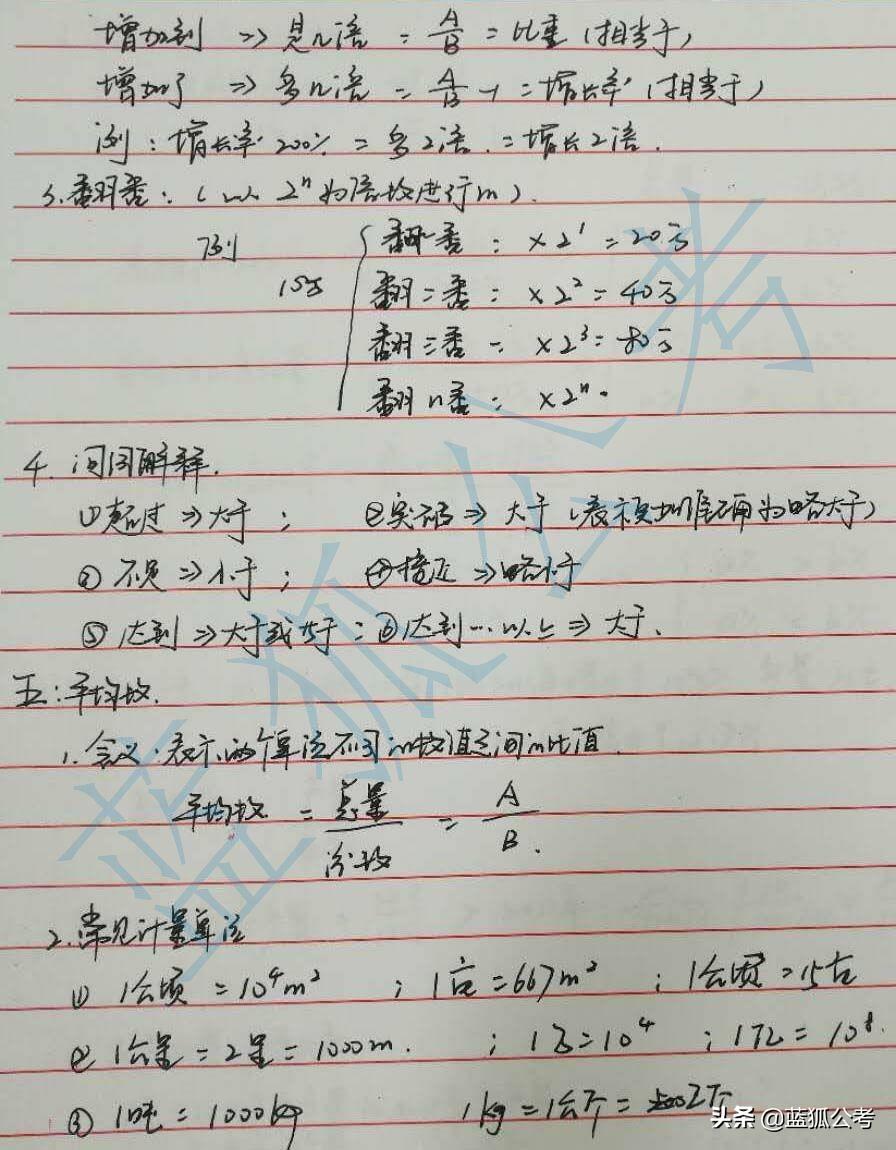 增加到 => 是n倍 = A/B = 比重(相当于)
增加了 => 多n倍 = A/B -1 = 增长率(相当于)
例:增长率200% = 多2倍. = 增长2倍.
3.翻番:(以 2ⁿ为倍数进行的).
例 翻一番: ×2¹ = 20万
翻二番: ×2² = 40万
翻三番: ×2³ = 80万
翻n番: ×2ⁿ.
4. 词词解释.
①超过 => 大于; ②突破 => 大于(表示更加准确为略大于)
③ 不足 => 小于; ④接近 => 略小于
⑤ 达到 => 大于或等于; ⑥达到…以上 => 大于.
五:平均数.
1.含义:表示两个单位不同的数值之间的比值.
平均数 = 总量/份数 = A/B.
2.常见计量单位
① 1公顷 = 10⁴m² ; 1亩 = 667m² ; 1公顷 = 15亩
② 1公里 = 2里 = 1000m. ; 1万 = 10⁴ ; 1亿 = 10⁸.
③ 1吨 = 1000kg 1kg = 1公斤 = 2斤
蓝狐公考
头条 @蓝狐公考